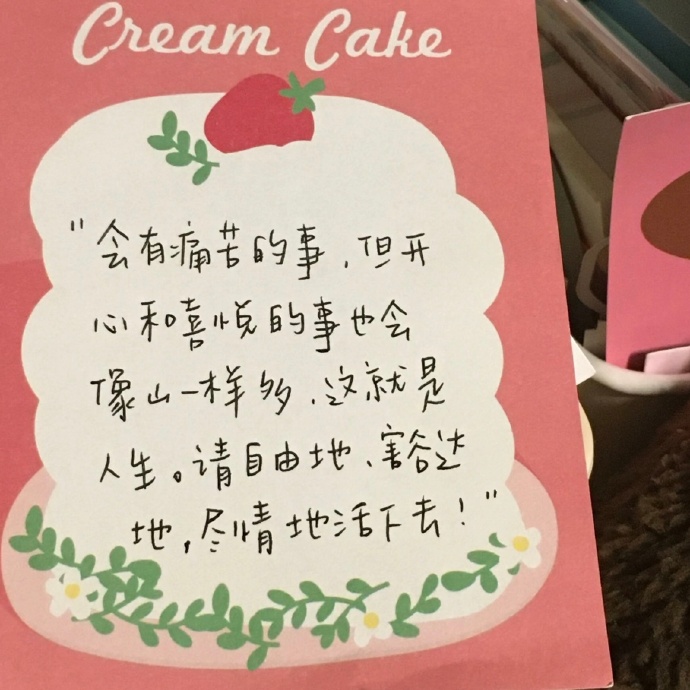 Cream Cake
"会有痛苦的事,但开
心和喜悦的事也会
像山一样多,这就是
人生。请自由地、豁达
地,尽情地活下去!"